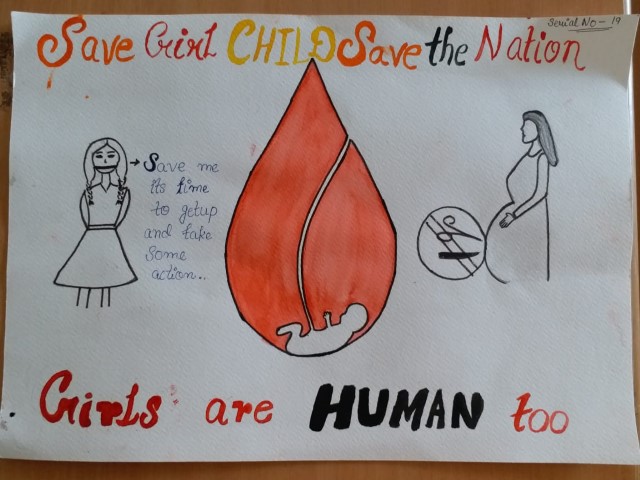 Serial No - 19
Save Girl CHILD Save the Nation
Save me
its time
to getup
and take
some
action..
Girls are HUMAN too